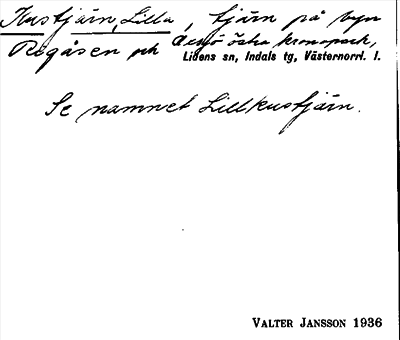 Kustjärn, Lilla, tjärn på byn
Rogåsen och Aesjö östra kronopark,
Lidens sn, Indals tg, Västernorrl. l.
Se namnet Lillkustjärn.
VALTER JANSSON 1936